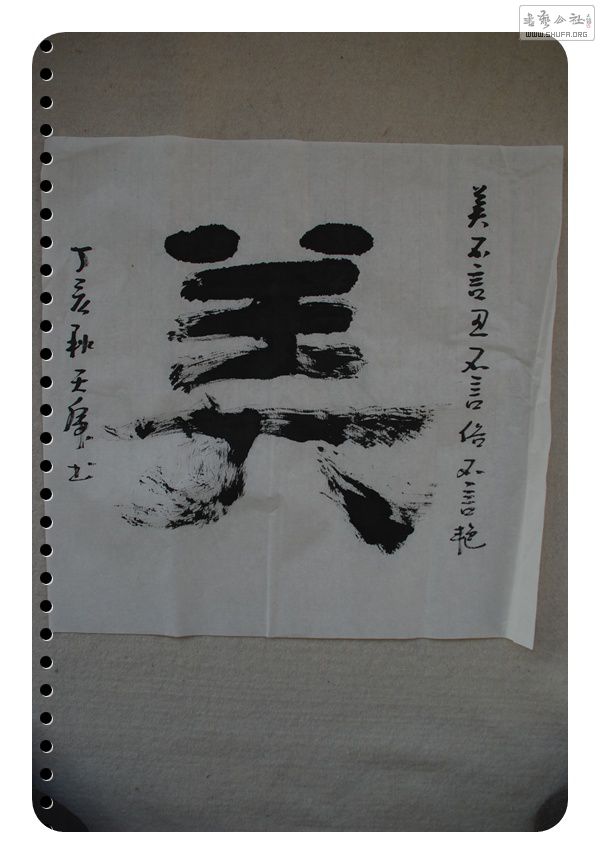 美不言丑不言俗不言艳
美
丁亥秋天
书
书艺公社
WWW.SHUFA.ORG